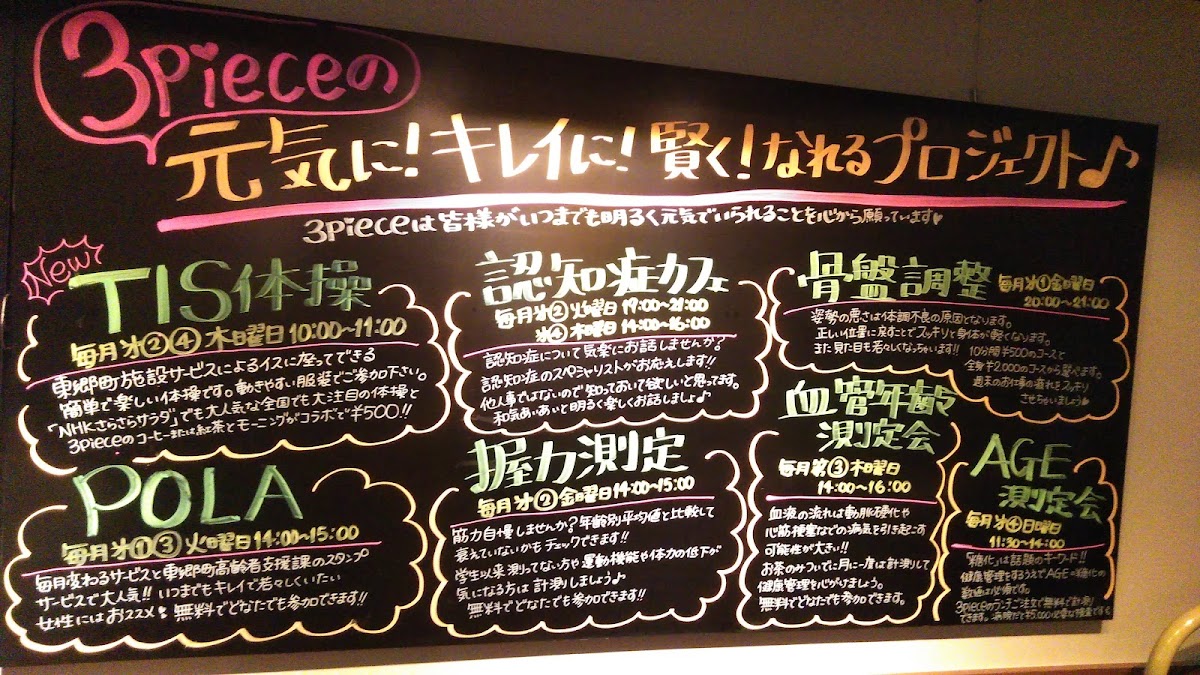 3pieceの
元気に!キレイに!賢く!なれるプロジェクト♪
3pieceは皆様がいつまでも明るく元気でいられることを心から願っています♥
New
TIS体操
毎月㐧②④木曜日10:00~11:00
東郷町施設サービスによるイスに座ってできる
簡単で楽しい体操です。動きやすい服装でご参加下さい。
「NHKさらさらサラダ」でも大人気な全国でも大注目の体操と
3pieceのコーヒーまたは紅茶とモーニングがコラボで¥500!!
認知症カフェ
毎月㐧②火曜日19:00~21:00
㐧④木曜日14:00~16:00
認知症について気楽にお話しませんか?
認知症のスペシャリストがお応えします!!
他人事ではないので知っておいて欲しいと思ってます。
和気あいあいと明るく楽しくお話しましょ♪
骨盤調整
毎月㐧①金曜日
20:00~21:00
姿勢の悪さは体調不良の原因となります。
正しい位置に戻すことでスッキリと身体が軽くなります。
また見た目も若々しくなっちゃいます!! 10分間¥500のコースと
全身¥2,000のコースから選べます。
週末のお仕事の疲れをスッキリ
させちゃいましょう♥
POLA
毎月㐧①③火曜日14:00~15:00
毎月変わるサービスと東郷町高齢者支援課のスタンプ
サービスで大人気!!いつまでもキレイで若々しくいたい
女性にはおススメ!無料でどなたでも参加できます!!
握力測定
毎月㐧②金曜日14:00~15:00
筋力自慢しませんか?年齢別平均値と比較して
衰えていないかもチェックできます!!
学生以来測ってない方や運動機能や体力の低下が
気になる方は計測しましょう♪
無料でどなたでも参加できます!!
血管年齢
測定会
毎月第③木曜日
14:00~16:00
血液の流れは動脈硬化や
心筋梗塞などの病気を引き起こす
可能性が大きい!!
お茶のみついでに月に一度は計測して
健康管理を心がけましょう。
無料でどなたでも参加できます。
AGE
測定会
毎月㐧④日曜日
11:30~14:00
「糖化」は話題のキーワード!!
健康管理をするうえでAGE=糖化の
数値は必須です。
3pieceのランチご注文で無料で計測
できます。病院だと¥5,000